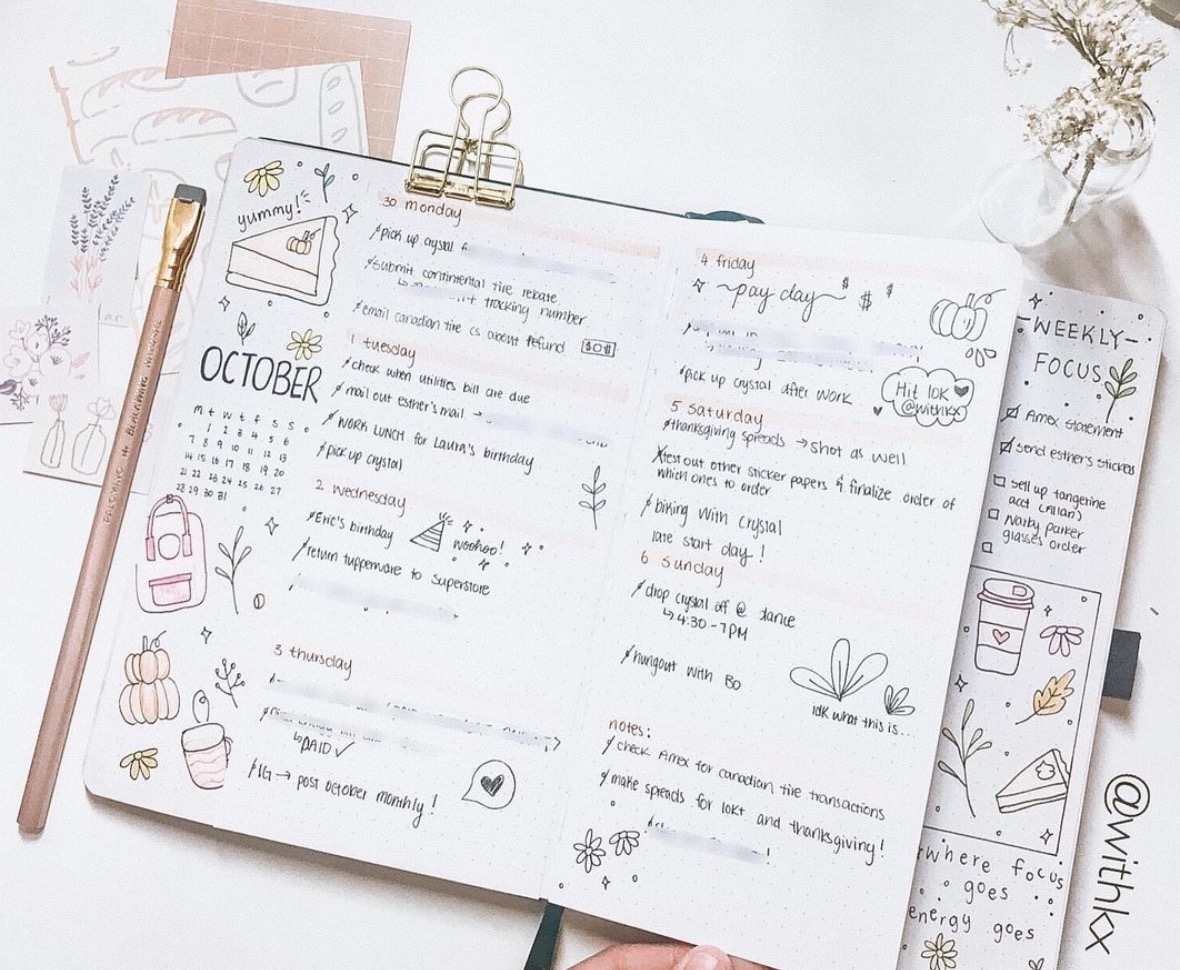 yummy!
OCTOBER
m t w t f s s
1 2 3 4 5 6
7 8 9 10 11 12 13
14 15 16 17 18 19 20
21 22 23 24 25 26 27
28 29 30 31
30 monday
pick up crystal
submit contintental tire rebate
tracking number
email canadian tire cs about refund
1 tuesday
check when utilities bill are due
mail out esther's mail →
WORK LUNCH for Laura's birthday
pick up crystal
2 wednesday
Eric's birthday
woohoo!
return tupperware to superstore
3 thursday
↳ PAID ✓
IG → post october monthly!
4 friday
~pay day~
$ $ $
pick up crystal after work
Hit 10K
@withkx
5 saturday
thanksgiving spreads → shot as well
test out other sticker papers & finalize order of
which ones to order
biking with crystal
late start day!
6 sunday
drop crystal off @ dance
↳ 4:30 - 7PM
hangout with Bo
idk what this is...
notes:
check Amex for canadian tire transactions
make spreads for 10k and thanksgiving!
WEEKLY-
FOCUS
Amex statement
send esther's stickers
set up tangerine
acct (milan)
warby parker
glasses order
where focus
goes
energy goes
@withkx